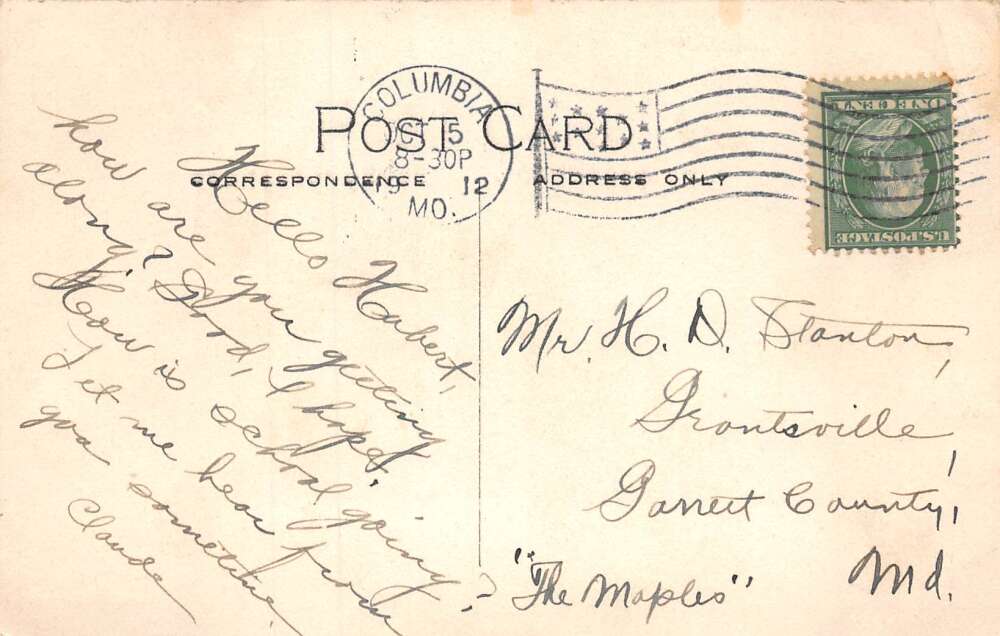 POST CARD
CORRESPONDENCE
ADDRESS ONLY
COLUMBIA
OCT 5
8-30P
19 12
MO.
ONE CENT
U.S. POSTAGE
Hello Hubert,
how are you getting
along? Good, I hope.
How is school going?
Let me hear from
you sometime.
Claude
Mr. H. D. Stanton,
Grantsville,
Garrett County,
"The Maples" Md.